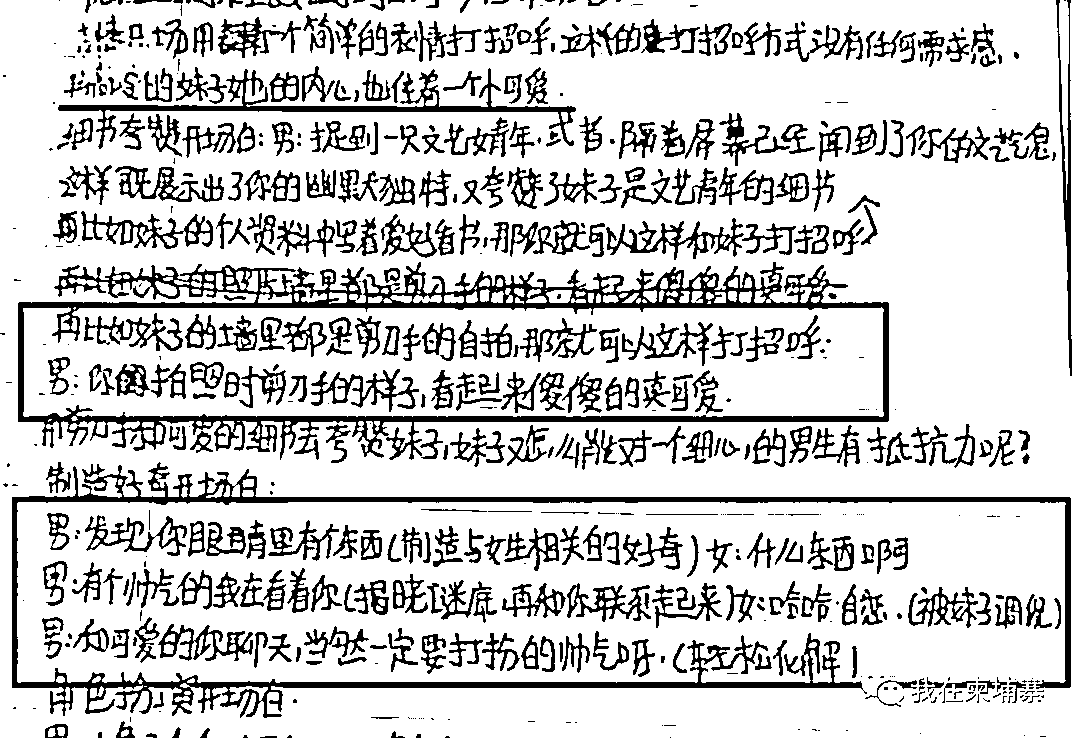 场用一个简单的表情打招呼,这样的打招呼方式没有任何需求感.
的妹子她的内心,也住着一个小可爱.
细书夸赞开场白:男:捉到一只文艺女青年.或者.隔着屏幕已经闻到了你的文艺气息,
这样既展示出了你的幽默独特,又夸赞了妹子是文艺青年的细书
再比如妹子的个人资料中写着爱好看书,那你就可以这样和妹子打招呼
再比如妹子的照片墙里都是剪刀手的样子.看起来傻傻的真可爱.
再比如妹子的墙里都是剪刀手的自拍,那你就可以这样打招呼:
男:你拍照时剪刀手的样子,看起来傻傻的真可爱.
用剪刀手可爱的细书去夸赞妹子,妹子又怎么能对一个细心的男生有抵抗力呢?
制造好奇开场白:
男:发现你眼睛里有个东西(制造与女生相关的好奇)女:什么东西啊
男:有个帅气的我在看着你(揭晓谜底,再和你联系起来)女:哈哈自恋.(被妹子调侃)
男:和可爱的你聊天,当然一定要打扮的帅气呀.(轻松化解)
角色扮演开场白.
我在柬埔寨